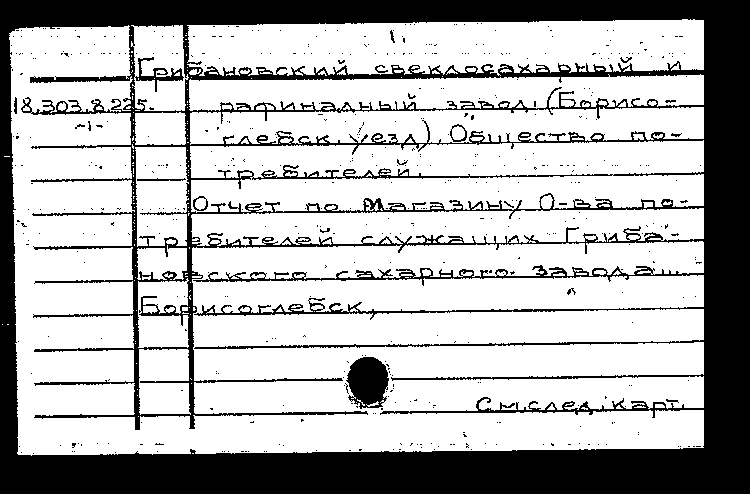 1.
Грибановский свеклосахарный и
18.303.8.225. рафинадный завод, (Борисо=
-1- глебск. уезд). Общество по-
требителей.
Отчет по магазину О-ва по-
требителей служащих Гриба-
новского сахарного завода...
Борисоглебск,
См. след. карт.